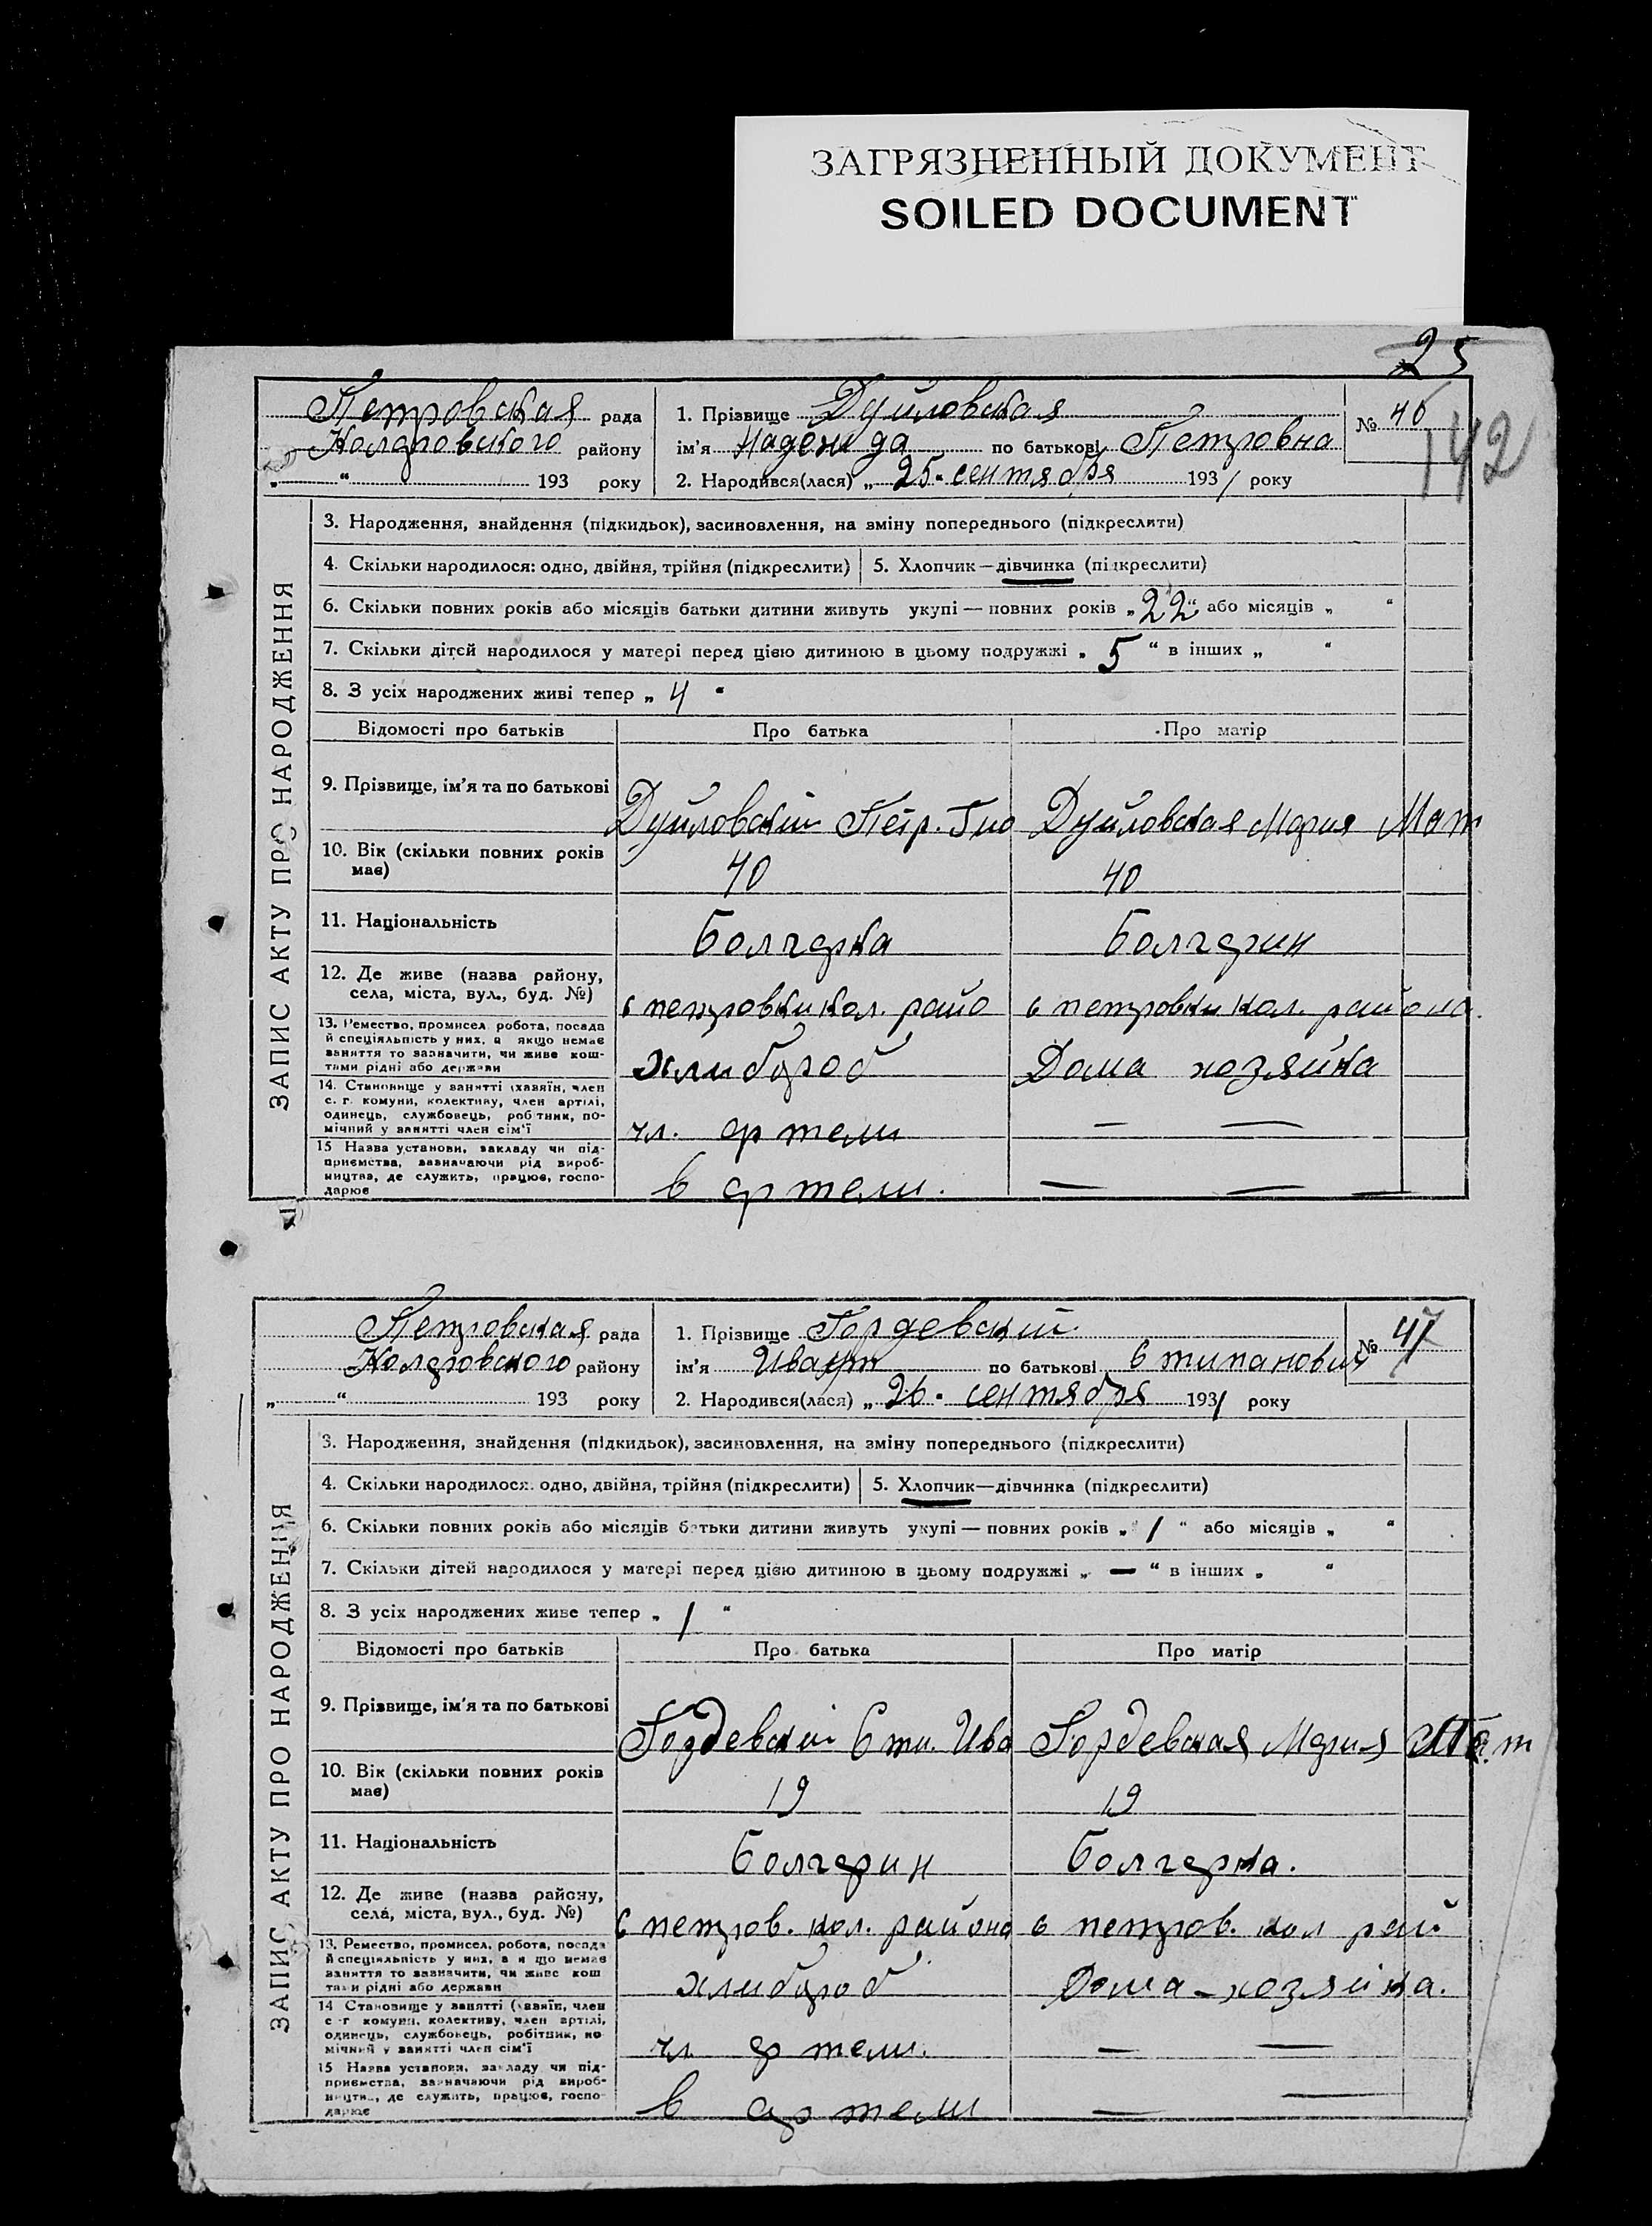 ЗАГРЯЗНЕННЫЙ ДОКУМЕНТ
SOILED DOCUMENT
25
Петровская рада
Коларовского району
„ “ 193 року
1. Прізвище Дуйловская
ім'я Надежда по батькові Петровна
2. Народився(лася) „ 25 “ сентября 1931 року
№ 40
142
ЗАПИС АКТУ ПРО НАРОДЖЕННЯ
3. Народження, знайдення (підкидьок), засиновлення, на зміну попереднього (підкреслити)
4. Скільки народилося: одно, двійня, трійня (підкреслити) 5. Хлопчик—дівчинка (підкреслити)
6. Скільки повних років або місяців батьки дитини живуть укупі — повних років „ 22 “ або місяців „ “
7. Скільки дітей народилося у матері перед цією дитиною в цьому подружжі „ 5 “ в інших „ “
8. З усіх народжених живі тепер „ 4 “
Відомості про батьків Про батька Про матір
9. Прізвище, ім'я та по батькові Дуйловскій Петр. Дуйловская Мария Мат
10. Вік (скільки повних років має) 40 40
11. Національність Болгарка Болгарин
12. Де живе (назва району, села, міста, вул., буд. №) с петровки кол. райо с петровки кол. района.
13. Ремество, промисел, робота, посада й спеціяльність у них, а якщо немає заняття то зазначити, чи живе коштами рідні або держави хлибороб Дома хозяйка
14. Становище у занятті (хазяїн, член с. г. комуни, колективу, член артілі, одинець, службовець, робітник, помічний у занятті член сім'ї чл. артели — —
15 Назва установи, закладу чи підприємства, зазначаючи рід виробництва, де служить, працює, господарює в артели. — — —
Петровская рада
Коларовского району
„ “ 193 року
1. Прізвище Гордевский
ім'я Иван по батькові Стипанович
2. Народився(лася) „ 26 “ сентября 1931 року
№ 41
ЗАПИС АКТУ ПРО НАРОДЖЕННЯ
3. Народження, знайдення (підкидьок), засиновлення, на зміну попереднього (підкреслити)
4. Скільки народилося: одно, двійня, трійня (підкреслити) 5. Хлопчик—дівчинка (підкреслити)
6. Скільки повних років або місяців батьки дитини живуть укупі — повних років „ 1 “ або місяців „ “
7. Скільки дітей народилося у матері перед цією дитиною в цьому подружжі „ — “ в інших „ “
8. З усіх народжених живе тепер „ 1 “
Відомості про батьків Про батька Про матір
9. Прізвище, ім'я та по батькові Гордевский Сти. Ива Гордевская Мария
10. Вік (скільки повних років має) 19 19
11. Національність Болгарин Болгарка.
12. Де живе (назва району, села, міста, вул., буд. №) с петров. кол. района с петров. кол рай
13. Ремество, промисел, робота, посада й спеціяльність у них, а якщо немає заняття то зазначити, чи живе коштами рідні або держави хлибороб Дома - хозяйка.
14 Становище у занятті (хазяїн, член с-г комуни, колективу, член артілі, одинець, службовець, робітник, помічний у занятті член сім'ї чл. артели. — —
15 Назва установи, закладу чи підприємства, зазначаючи рід виробництва, де служить, працює, господарює в артели — —